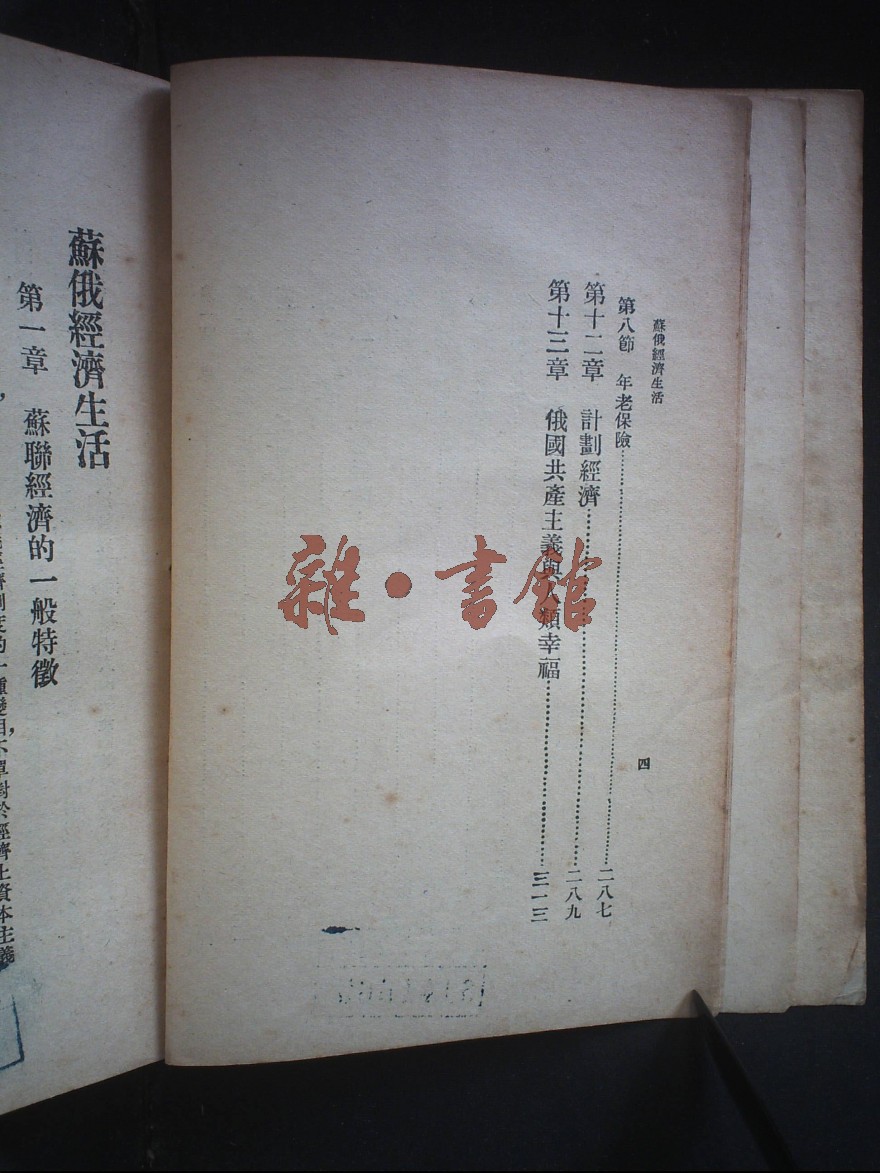 蘇俄經濟生活
第八節　年老保險……二八七
第十二章　計劃經濟……二八九
第十三章　俄國共產主義與人類幸福……三一三
四
雜·書館
蘇俄經濟生活
第一章　蘇聯經濟的一般特徵
濟制度的一種變相，不單對於經濟上資本主義